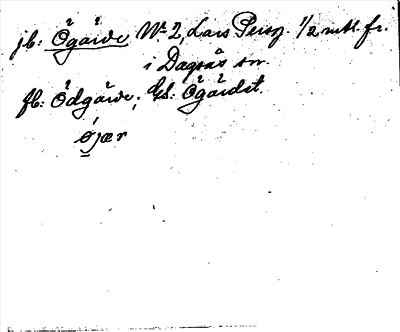 jb: Ögärde Nº 2, Lars Persg. 1/2 mtl. fr.
i Dagsås sn.
fb: Ödgärde; GS: Ögärdet.
øjær